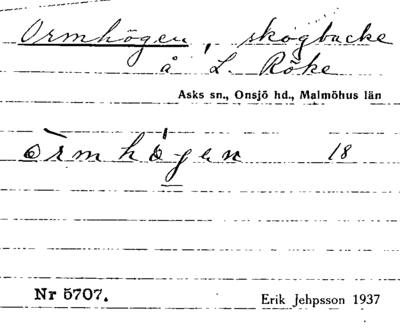 Ormhögen, skogbacke
å L. Röke
Asks sn., Onsjö hd., Malmöhus län
òrmhö́gen 18
Nr 5707.
Erik Jehpsson 1937